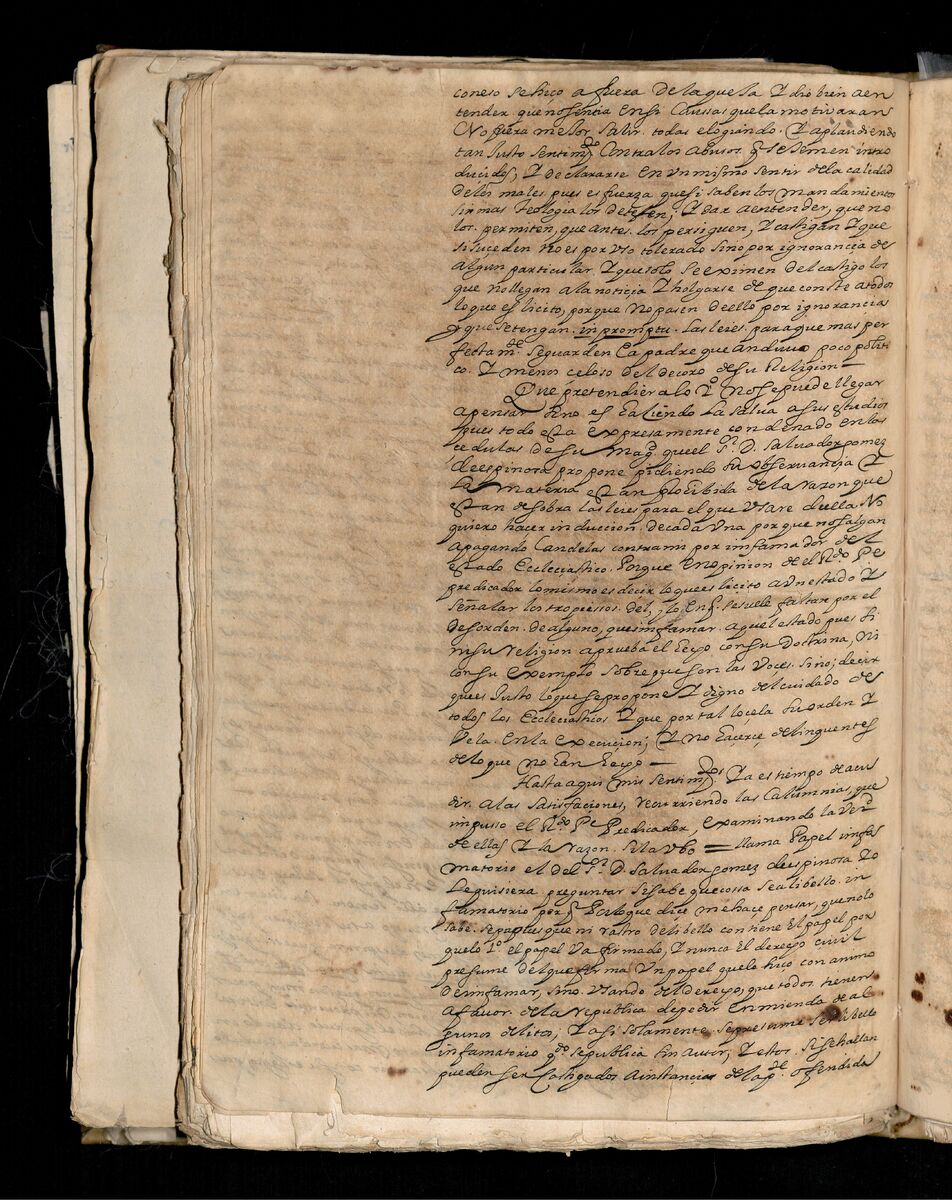 coneso se hiço a fuera de la quexa Y dio bien a en
tender que no sentia en si Caussas que la motivaran
No fuera mejor salir todas elogiando. Y aplaudiendo
tan Justo sentimto Contra los abusos q se temen intro
ducidos, Y declararse en Vn mismo sentir de la calidad
de los males pues es fuerza que si saben los mandamientos
sin mas teologia los detesten; Y dar a entender, que no
los permiten, que antes los persiguen, Y castigan Y que
si suceden no es por Vso tolerado sino por ignorancia de
algun particular Y que solo se eximen del castigo los
que no llegan a la noticia Y holgarse de que conste a todos
lo que es licito, porque no pasen de ello por ignorancia
Y que se tengan in promptu. las leies para que mas per
fectamte se guarden Ea padre que anduuo poco politi
co. Y menos celoso del decoro de su Religion —
Que pretendiera lo 1o no se puede llegar
a pensar sino es haciendo la salua a sus estudios
pues todo esta expresamente condenado en las
cedulas de su Magd que el Sr. D. Saluador gomez
de espinosa propone pidiendo su obseruancia Y
la materia es tan prohibida de la razon que
estan de sobra las leies para el que Vsare de ella No
quiero hacer induccion de cada Vna por que no salgan
apagando Candelas contra mi por infamador del
estado Ecclesiastico. Porque en opinion de el Rdo Pe
predicador lo mismo es decir lo que es licito a Vn estado Y
señalar los tropiessos del, lo en q. se suele faltar por el
desorden de alguno, que infamar aquel estado pues si
en su religion aprueba el hecho con su Doctrina, Ni
con su exemplo sobre que son las Voces. sino; decir
que es Justo lo que se propone Y digno del cuidado de
todos los Ecclesiasticos Y que por tal lo cela su orden Y
Vela En la execucion; Y no hacerce delinquentes
de lo que no han hecho —
Hasta aqui mis sentimtos. Ya es tiempo de acu
dir a las satisfaciones, recurriendo las Calumnias, que
impuso el Rdo Pe Predicador, examinando la Verd
de ellas Y la razon. si la Vbo = llama Papel infa
matorio el del Sr. D. saluador gomez de espinosa Yo
le quisiera preguntar si sabe que cossa sea libello in
famatorio por q Porlo que dice me hace pensar, que no lo
sabe. sepa pues que ni rastro de libello contiene El papel por
que lo 1o el papel Va firmado, Y nunca El derecho ciuil
presume del que firma Vn papel que lo hiço con animo
de infamar, sino. Vsando del derecho, que todos tienen
a fauor de la republica de pedir Enmienda de al
gunos delitos, Y assi solamente se presume ser libello
infamatorio qdo se publica sin autor, Y estos si se hallan
pueden ser castigados a instancias de la pte ofendida